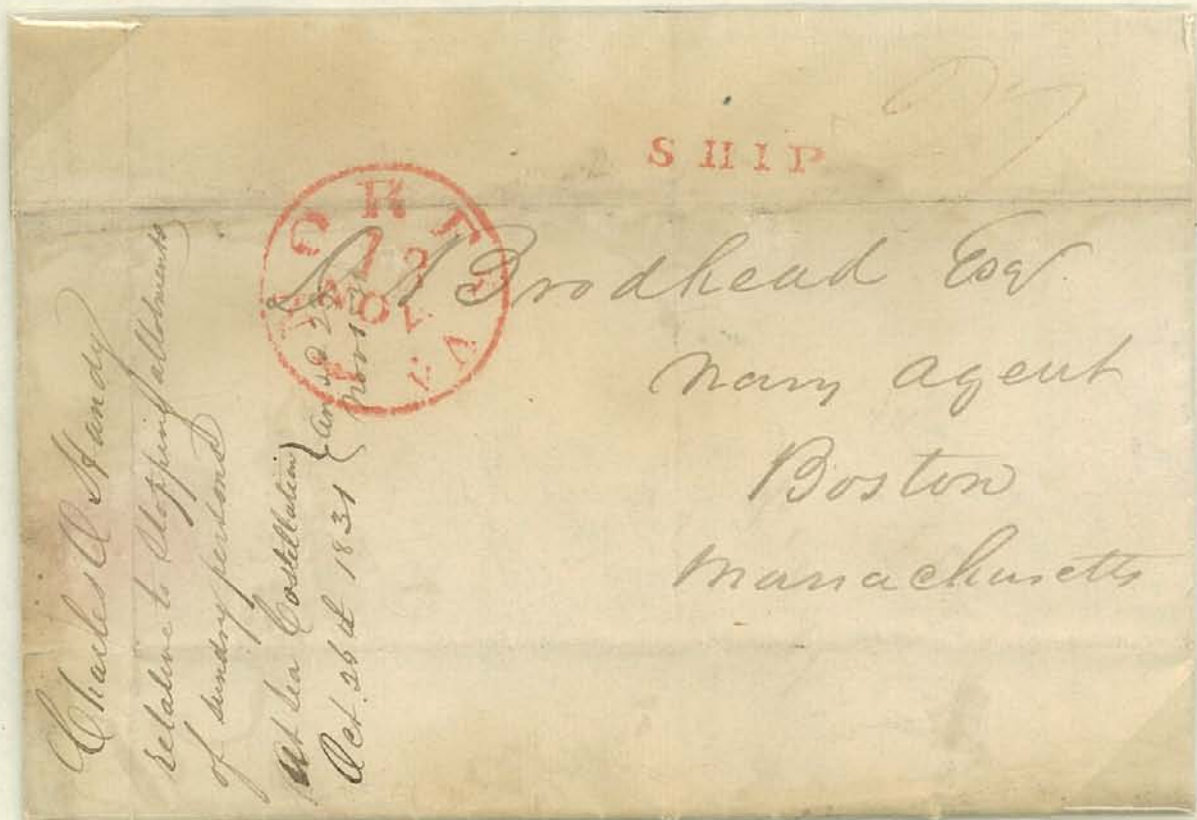 SHIP
27
NORFOLK
12
NOV
VA
Brodhead Esqr
Navy Agent
Boston
Massachusetts
Charles O Handy
relative to stopping allotments
of sundry persons
At Sea Costellation
Oct. 26th 1831